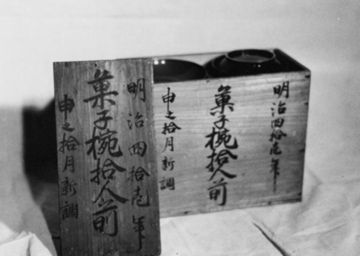 明治四拾壱年
菓子椀拾人前
申之拾月新調
明治四拾壱年
菓子椀拾人前
申之拾月新調